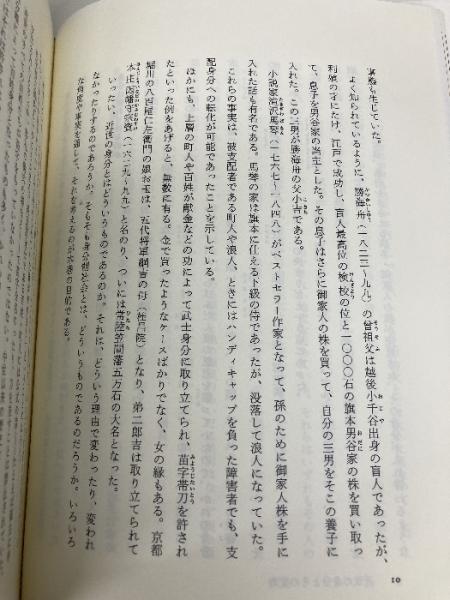 事態も生じていた。
よく知られているように、勝海舟(一八二三~九九)の曾祖父は越後小千谷出身の盲人であったが、
利殖の才にたけ、江戸で成功し、盲人最高位の検校の位と一〇〇〇石の旗本男谷家の株を買い取っ
て、息子を男谷家の当主とした。その息子はさらに御家人の株を買って、自分の三男をそこの養子に
入れた。この三男が勝海舟の父小吉である。
小説家滝沢馬琴(一七六七~一八四八)がベストセラー作家となって、孫のために御家人株を手に
入れた話も有名である。馬琴の家は旗本に仕える下級の侍であったが、没落して浪人になっていた。
これらの事実は、被支配者である町人や浪人、ときにはハンディキャップを負った障害者でも、支
配身分への転化が可能であったことを示している。
ほかにも、上層の町人や百姓が献金などの功によって武士身分に取り立てられ、苗字帯刀を許され
たといった例をあげると、無数に有る。金で買ったようなケースばかりでなく、女の縁もある。京都
堀川の八百屋仁左衛門の娘お玉は、五代将軍綱吉の母(桂昌院)となり、弟二郎吉は取り立てられて
本庄因幡守宗資(一六二九~九九)と名のり、ついには常陸笠間藩五万石の大名となった。
いったい、近世の身分とはどういうものであるのか。それは、どういう理由で変わったり、変われ
なかったりするのであろうか。そもそも身分制社会とは、どういうものであるのだろうか。いろいろ
な角度や事実を通して、それを考えるのが本巻の目的である。
10